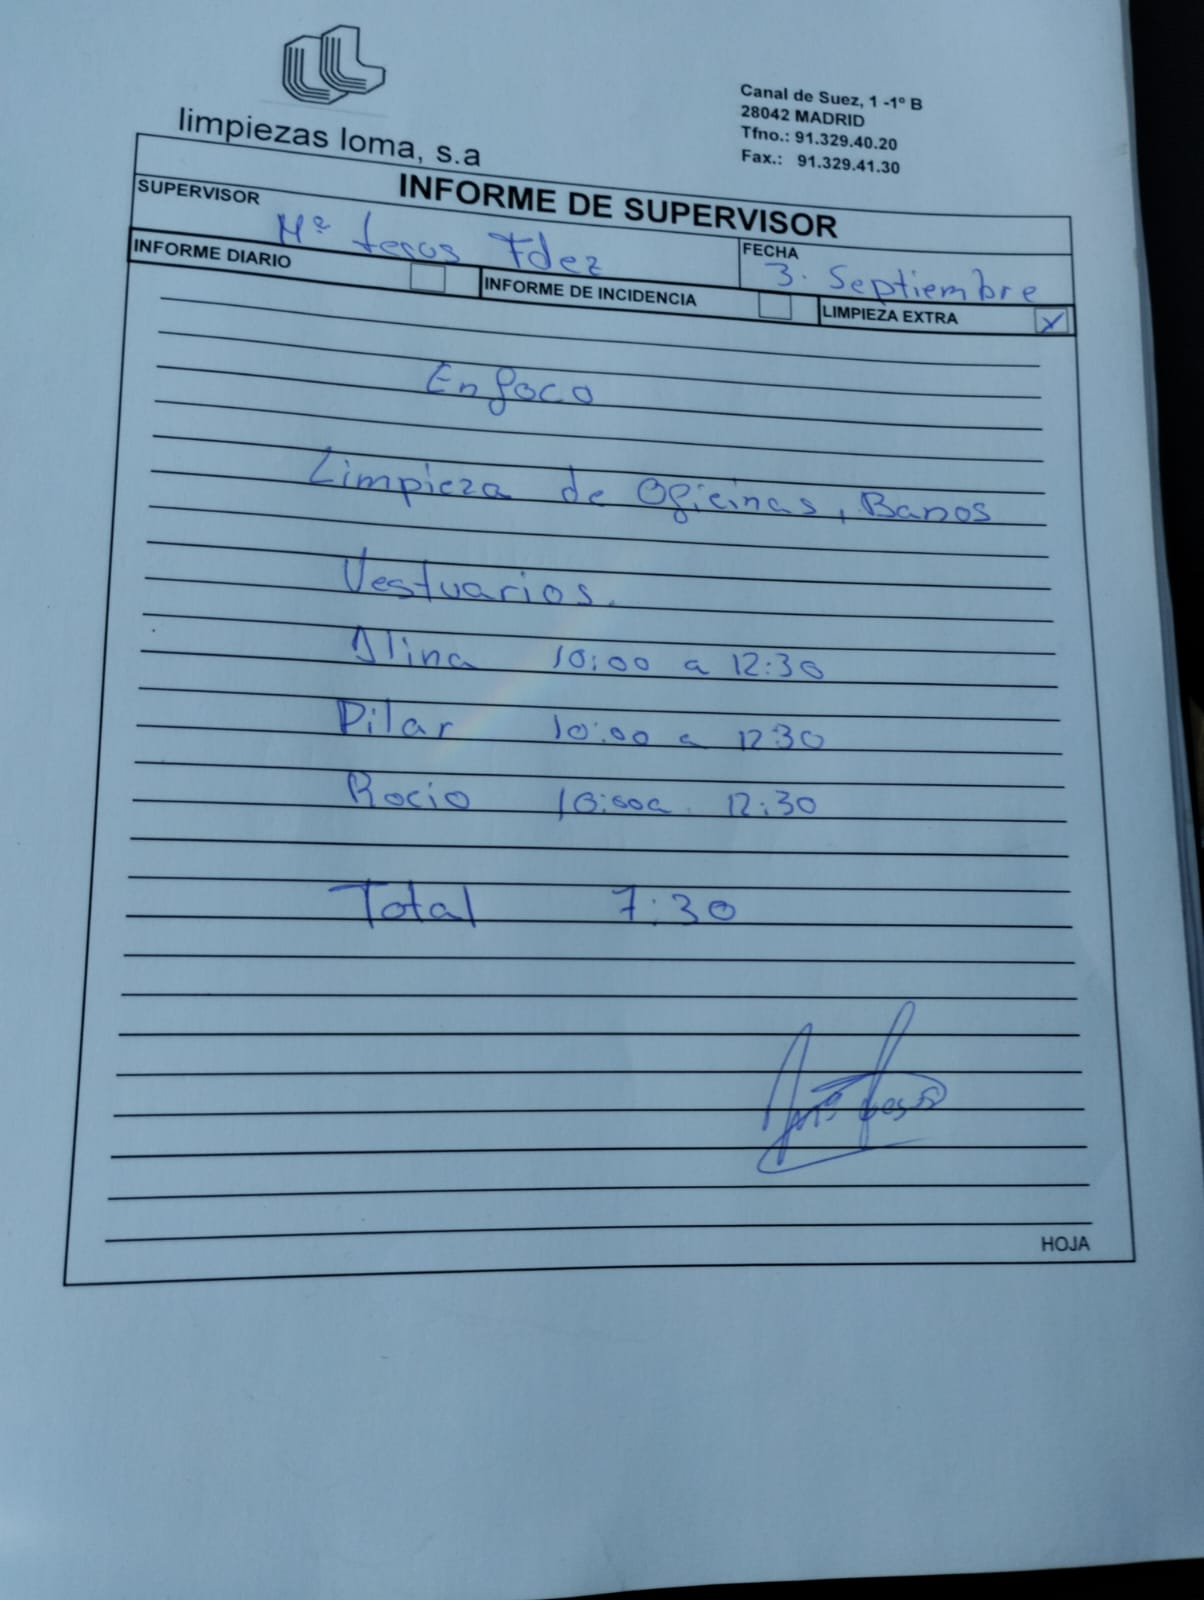 limpiezas loma, s.a
Canal de Suez, 1 -1º B
28042 MADRID
Tfno.: 91.329.40.20
Fax.: 91.329.41.30
INFORME DE SUPERVISOR
SUPERVISOR Mª Jesus Fdez
FECHA 3. Septiembre
INFORME DIARIO
INFORME DE INCIDENCIA
LIMPIEZA EXTRA X
Enfoco
Limpieza de Oficinas, Banos
Vestuarios.
Alina 10:00 a 12:30
Pilar 10:00 a 12:30
Rocio 10:00a 12:30
Total 7:30
HOJA